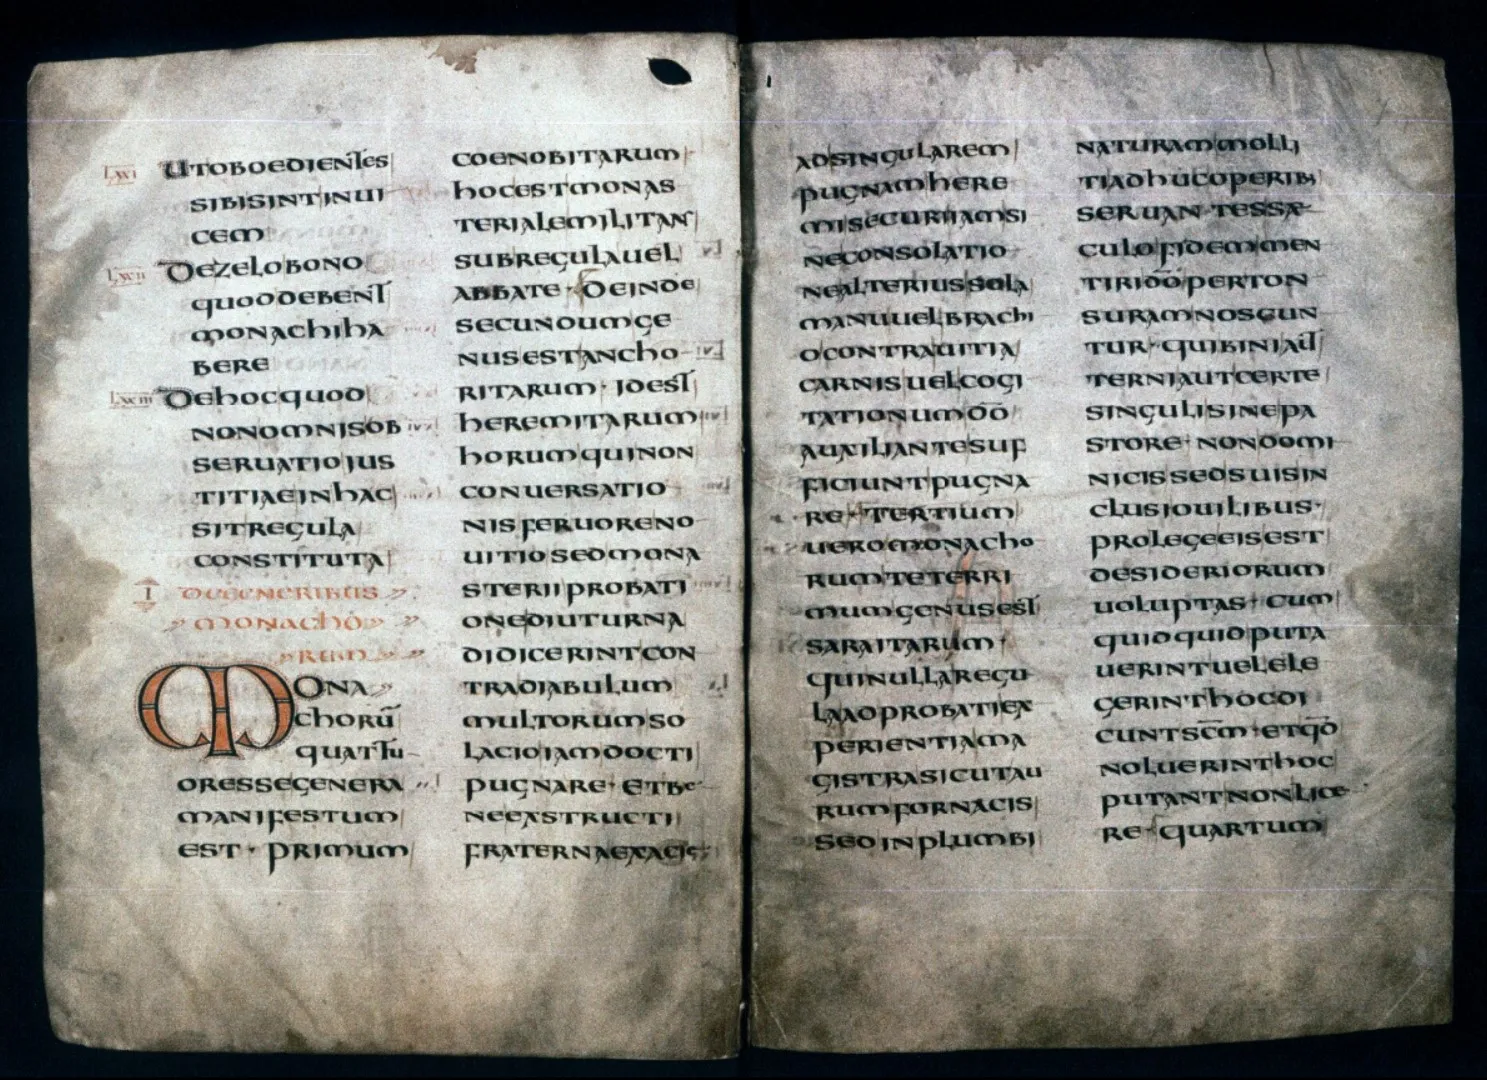 LXXI UTOBOEDIENTES
SIBISINTINUI
CEM
LXXII DEZELOBONO
QUODDEBENT
MONACHIHA
BERE
LXXIII DEHOCQUOD
NONOMNISOB
SERUATIOIUS
TITIAEINHAC
SITREGULA
CONSTITUTA
I DEGENERIBUS
MONACHO
RUM
MONA
CHORŪ
QUATTU
ORESSEGENERA
MANIFESTUM
EST · PRIMUM
COENOBITARUM
HOCESTMONAS
TERIALEMILITANS
SUBREGULAUEL
ABBATE · DEINDE
SECUNDUMGE
NUSESTANCHO
RITARUM · IDEST
HEREMITARUM
HORUMQUINON
CONUERSATIO
NISFERUORENO
UITIOSEDMONA
STERIIPROBATI
ONEDIUTURNA
DIDICERINTCON
TRADIABULUM
MULTORUMSO
LACIOIAMDOCTI
PUGNARE · ETBE
NEEXSTRUCTI
FRATERNAEXACIE
ADSINGULAREM
PUGNAMHERE
MISECURIIAMSI
NECONSOLATIO
NEALTERIUSSOLA
MANUUELBRACHI
OCONTRAUITIA
CARNISUELCOGI
TATIONUMDŌ
AUXILIANTESUF
FICIUNTPUGNA
RE · TERTIUM
UEROMONACHO
RUMTETERRI
MUMGENUSEST
SARAITARUM ·
QUINULLAREGU
LAXOPROBATIEX
PERIENTIAMA
GISTRASICUTAU
RUMFORNACIS
SEDINPLUMBI
NATURAMMOLLI
TIADHUCOPERIB;
SERUANTESSAE
CULOFIDEMMEN
TIRIDŌPERTON
SURAMNOSCUN
TUR · QUIBINIAUT
TERNIAUTCERTE
SINGULISINEPA
STORE · NONDOMI
NICISSEDSUISIN
CLUSIOUILIBUS ·
PROLEGEEISEST
DESIDERIORUM
UOLUPTAS · CUM
QUIDQUIDPUTA
UERINTUELELE
GERINTHOCDI
CUNTSC̄M · ETQŌD
NOLUERINTHOC
PUTANTNONLICE
RE · QUARTUM